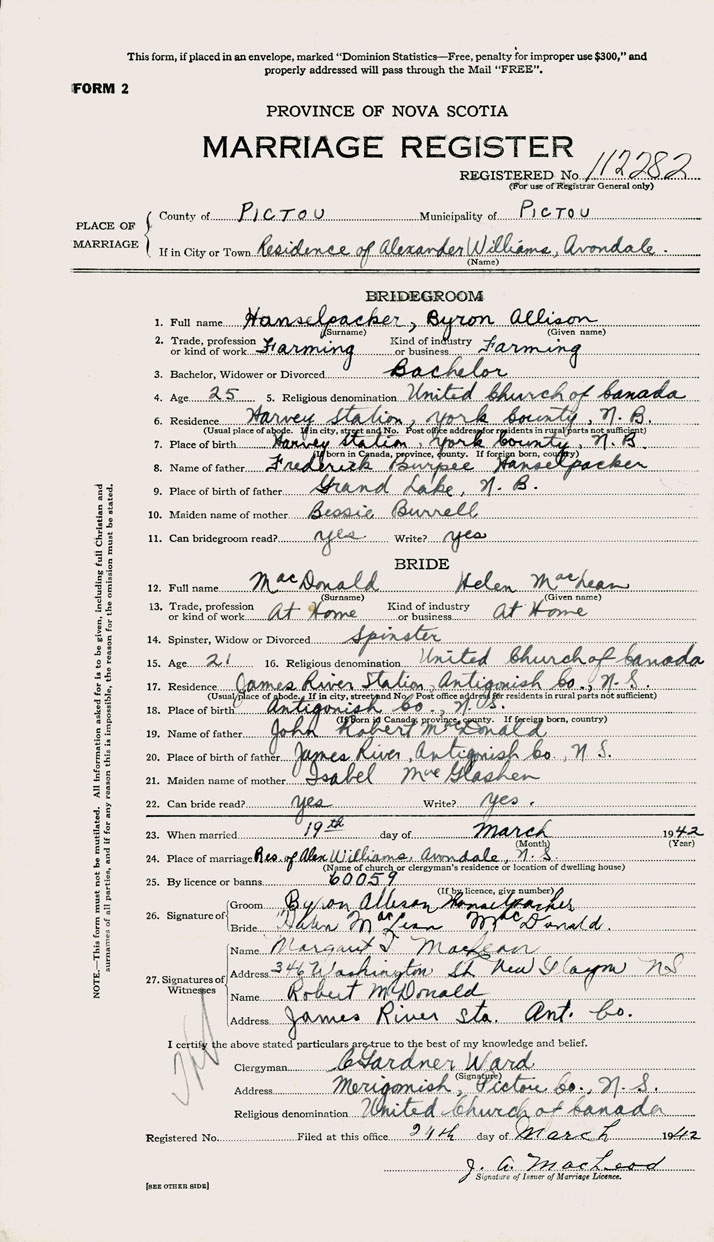 This form, if placed in an envelope, marked "Dominion Statistics—Free, penalty for improper use $300," and
properly addressed will pass through the Mail "FREE".
FORM 2
PROVINCE OF NOVA SCOTIA
MARRIAGE REGISTER
REGISTERED No. 112282
(For use of Registrar General only)
PLACE OF MARRIAGE
County of PICTOU Municipality of PICTOU
If in City or Town Residence of Alexander Williams, Avondale.
(Name)
BRIDEGROOM
1. Full name Hanselpacker, Byron Allison
(Surname) (Given name)
2. Trade, profession or kind of work Farming Kind of industry or business Farming
3. Bachelor, Widower or Divorced Bachelor
4. Age 25 5. Religious denomination United Church of Canada
6. Residence Harvey Station, York County, N. B.
(Usual place of abode. If in city, street and No. Post office address for residents in rural parts not sufficient)
7. Place of birth Harvey Station, York County, N. B.
(If born in Canada, province, county. If foreign born, country)
8. Name of father Frederick Burpee Hanselpacker
9. Place of birth of father Grand Lake, N. B.
10. Maiden name of mother Bessie Burrell
11. Can bridegroom read? yes Write? yes
BRIDE
12. Full name MacDonald Helen MacLean
(Surname) (Given name)
13. Trade, profession or kind of work At Home Kind of industry or business At Home
14. Spinster, Widow or Divorced Spinster
15. Age 21 16. Religious denomination United Church of Canada
17. Residence James River Station, Antigonish Co., N. S.
(Usual place of abode. If in city, street and No. Post office address for residents in rural parts not sufficient)
18. Place of birth Antigonish Co., N. S.
(If born in Canada, province, county. If foreign born, country)
19. Name of father John Robert McDonald
20. Place of birth of father James River, Antigonish Co., N S.
21. Maiden name of mother Isabel Mac Glashen
22. Can bride read? yes Write? yes.
23. When married 19th day of March 1942
(Month) (Year)
24. Place of marriage Res. of Alex Williams, Avondale, N. S
(Name of church or clergyman's residence or location of dwelling house)
25. By licence or banns 60059
(If by licence, give number)
26. Signature of
Groom Byron Allison Hanselpacker
Bride Helen MacLean MacDonald.
27. Signatures of Witnesses
Name Margaret MacLean
Address 346 Washington St New Glasgow NS
Name Robert McDonald
Address James River Sta. Ant. Co.
I certify the above stated particulars are true to the best of my knowledge and belief.
Clergyman C Gardner Ward
(Signature)
Address Merigonish, Pictou Co., N. S.
Religious denomination United Church of Canada
Registered No. Filed at this office 24th day of March 1942
J. A. MacLeod
Signature of Issuer of Marriage Licence.
[SEE OTHER SIDE]
NOTE.—This form must not be mutilated. All information asked for is to be given, including full Christian and
surnames of all parties, and if for any reason this is impossible, the reason for the omission must be stated.